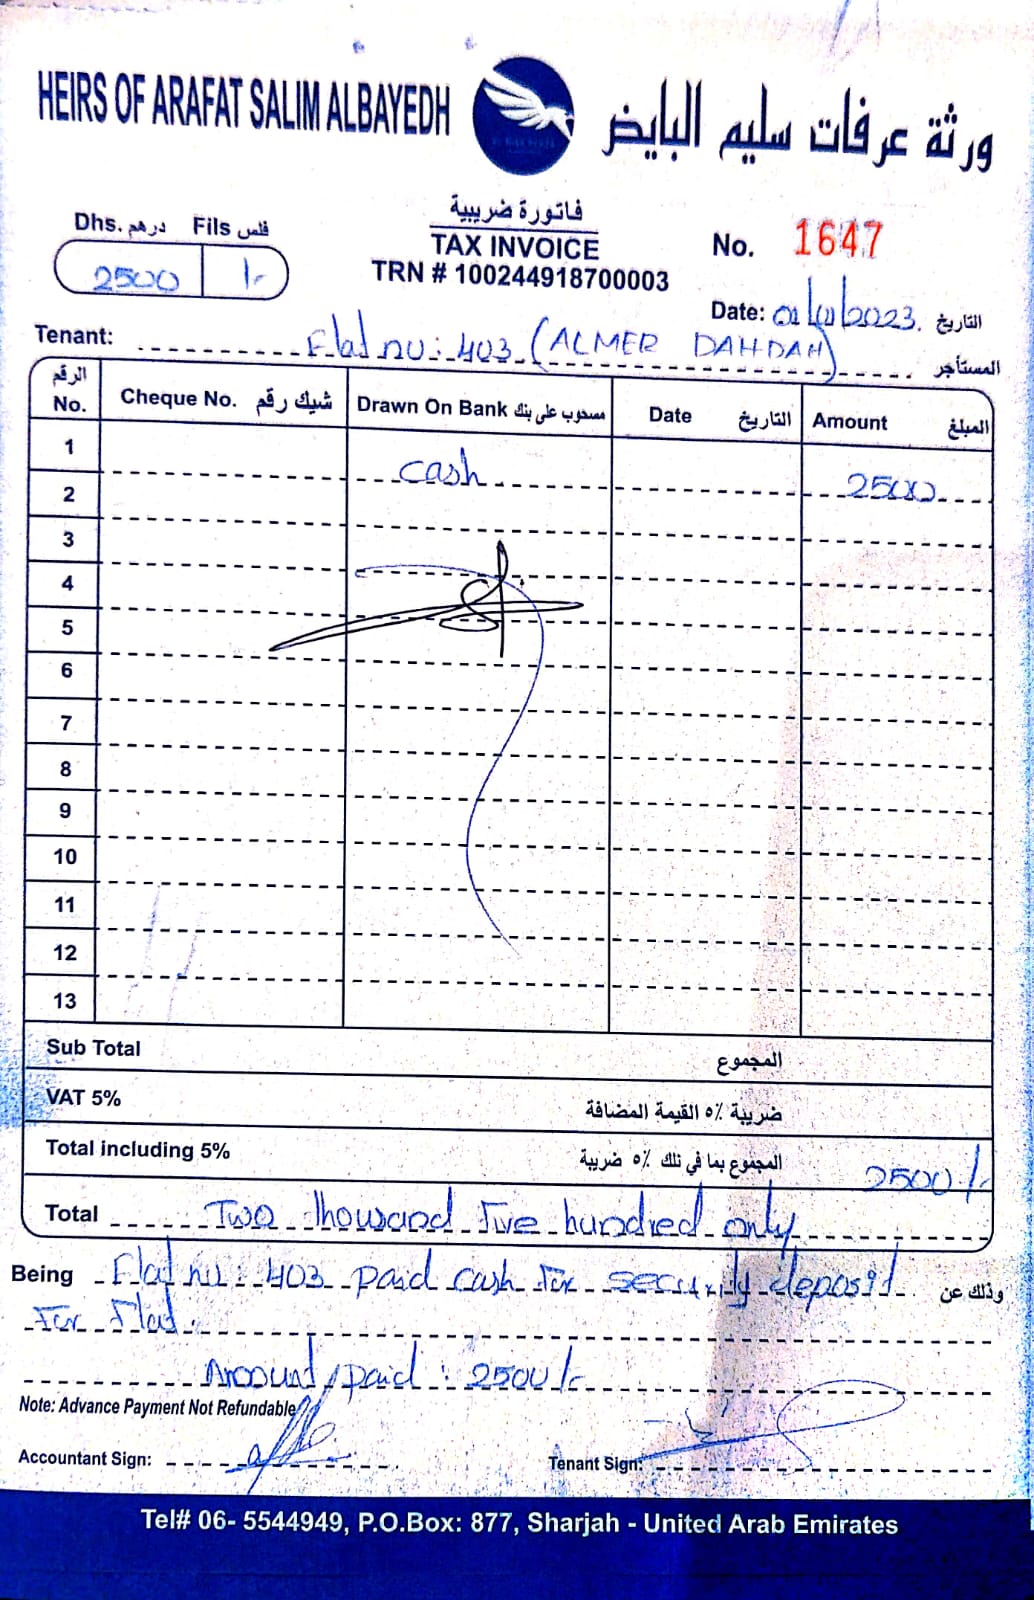 HEIRS OF ARAFAT SALIM ALBAYEDH
ورثة عرفات سليم البايض
فاتورة ضريبية
TAX INVOICE
TRN # 100244918700003
Dhs. درهم Fils فلس
2500 /-
No. 1647
Date: 01/11/2023. التاريخ
Tenant: Flat no: 403 (ALMER DAHDAH) المستأجر
الرقم No. Cheque No. شيك رقم Drawn On Bank مسحوب على بنك Date التاريخ Amount المبلغ
1 cash 2500
2
3
4
5
6
7
8
9
10
11
12
13
Sub Total المجموع
VAT 5% ضريبة ٥٪ القيمة المضافة
Total including 5% المجموع بما في ذلك ٥٪ ضريبة 2500/-
Total Two thousand five hundred only
Being Flat no: 403 paid cash for security deposit وذلك عن
For Flat.
Amount paid: 2500/-
Note: Advance Payment Not Refundable
Accountant Sign:
Tenant Sign:
Tel# 06- 5544949, P.O.Box: 877, Sharjah - United Arab Emirates